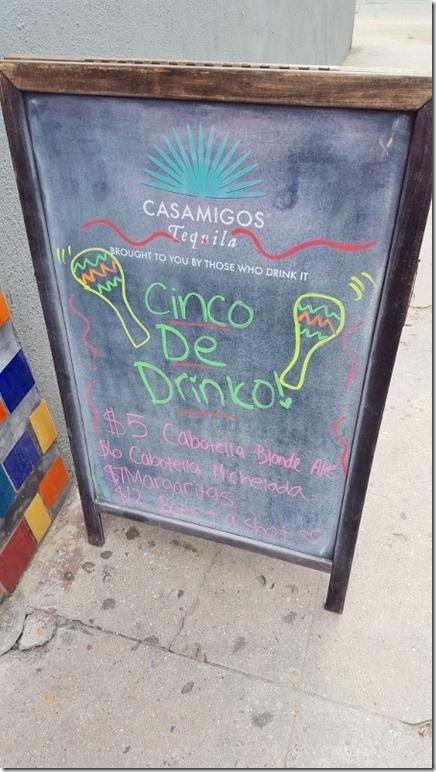 CASAMIGOS
Tequila
BROUGHT TO YOU BY THOSE WHO DRINK IT
Cinco
De
Drinko!
$5 Cabotella Blonde Ale
$6 Cabotella Michelada
$7 Margaritas
$12 Beer + a shot